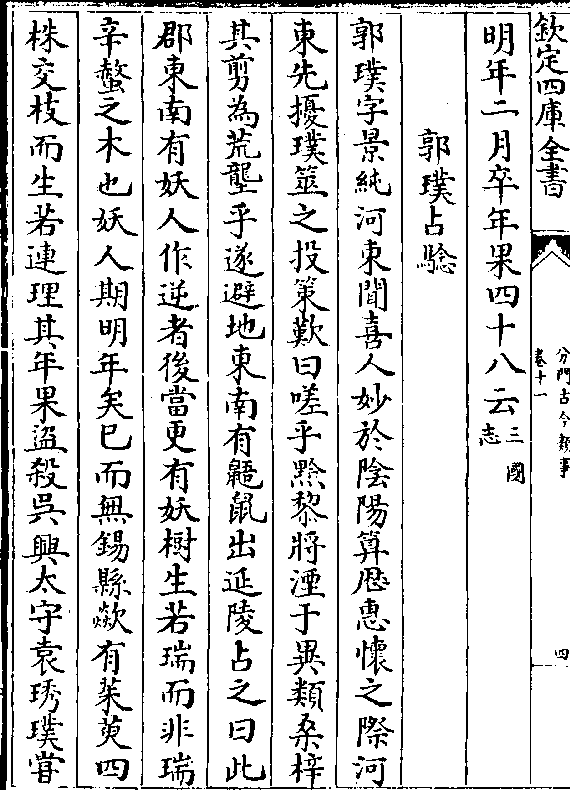 欽定四庫全書
分門古今類事
卷十一
四
明年二月卒年果四十八云三國志
郭璞占驗
郭璞字景純河東聞喜人妙於陰陽算厯惠懷之際河
東先擾璞筮之投策歎曰嗟乎黔黎將湮于異類桑梓
其剪為荒壟乎遂避地東南有鼯鼠出延陵占之曰此
郡東南有妖人作逆者後當更有妖樹生若瑞而非瑞
辛螫之木也妖人期明年矣已而無錫縣歘有茱萸四
株交枝而生若連理其年果盜殺吳興太守袁琇璞嘗